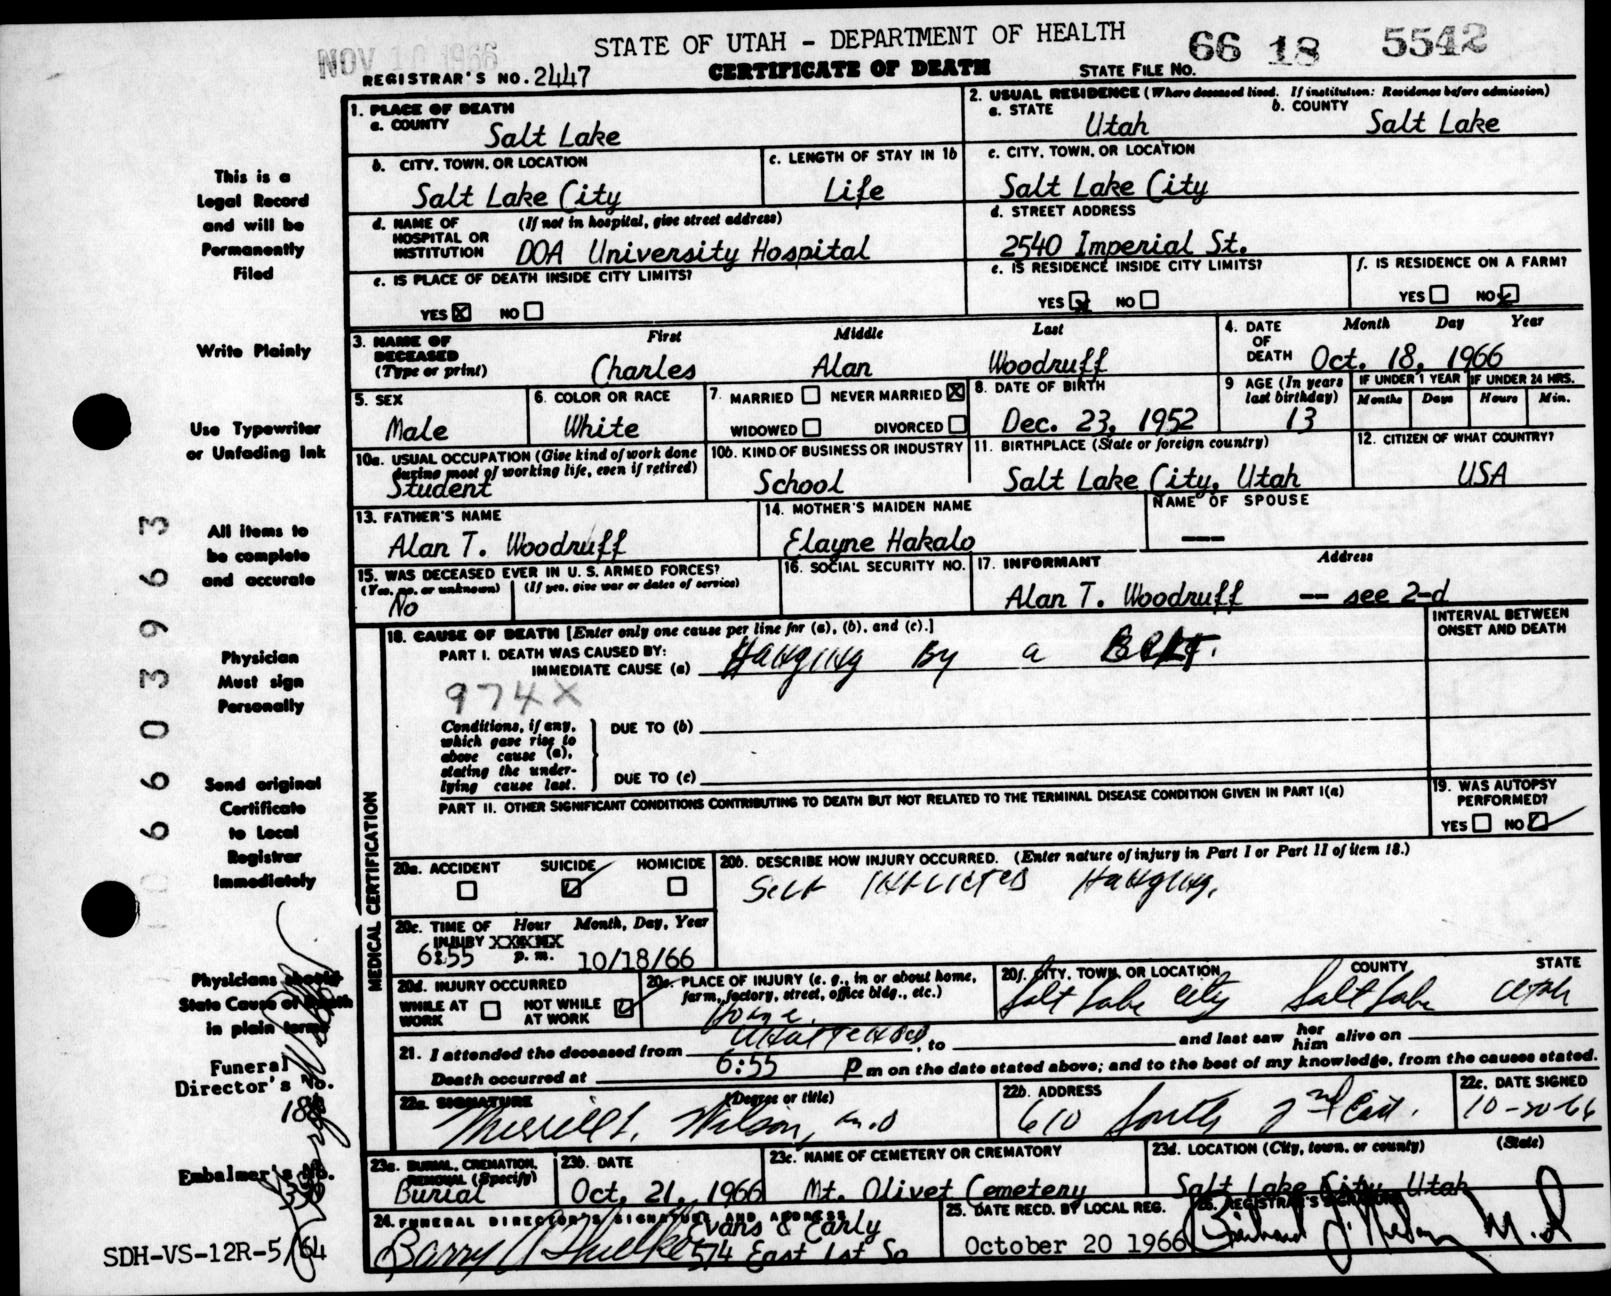 NOV 10 1966
STATE OF UTAH - DEPARTMENT OF HEALTH
66 18 5542
REGISTRAR'S NO. 2447
CERTIFICATE OF DEATH
STATE FILE NO.
1. PLACE OF DEATH
a. COUNTY
Salt Lake
2. USUAL RESIDENCE (Where deceased lived. If institution: Residence before admission)
a. STATE
Utah
b. COUNTY
Salt Lake
b. CITY, TOWN, OR LOCATION
Salt Lake City
c. LENGTH OF STAY IN 1b
Life
c. CITY, TOWN, OR LOCATION
Salt Lake City
d. NAME OF HOSPITAL OR INSTITUTION
(If not in hospital, give street address)
DOA University Hospital
d. STREET ADDRESS
2540 Imperial St.
e. IS PLACE OF DEATH INSIDE CITY LIMITS?
YES NO
e. IS RESIDENCE INSIDE CITY LIMITS?
YES NO
f. IS RESIDENCE ON A FARM?
YES NO
3. NAME OF DECEASED
(Type or print)
First Middle Last
Charles Alan Woodruff
4. DATE OF DEATH
Month Day Year
Oct. 18, 1966
5. SEX
Male
6. COLOR OR RACE
White
7. MARRIED NEVER MARRIED
WIDOWED DIVORCED
8. DATE OF BIRTH
Dec. 23, 1952
9 AGE (In years last birthday)
13
IF UNDER 1 YEAR
Months Days
IF UNDER 24 HRS.
Hours Min.
10a. USUAL OCCUPATION (Give kind of work done during most of working life, even if retired)
Student
10b. KIND OF BUSINESS OR INDUSTRY
School
11. BIRTHPLACE (State or foreign country)
Salt Lake City, Utah
12. CITIZEN OF WHAT COUNTRY?
USA
13. FATHER'S NAME
Alan T. Woodruff
14. MOTHER'S MAIDEN NAME
Elayne Hakalo
NAME OF SPOUSE
—
15. WAS DECEASED EVER IN U. S. ARMED FORCES?
(Yes, no, or unknown) (If yes, give war or dates of service)
No
16. SOCIAL SECURITY NO.
17. INFORMANT Address
Alan T. Woodruff — see 2-d
18. CAUSE OF DEATH [Enter only one cause per line for (a), (b), and (c).]
INTERVAL BETWEEN ONSET AND DEATH
PART I. DEATH WAS CAUSED BY:
IMMEDIATE CAUSE (a) Hanging By a Belt.
974X
Conditions, if any, which gave rise to above cause (a), stating the underlying cause last.
DUE TO (b)
DUE TO (c)
PART II. OTHER SIGNIFICANT CONDITIONS CONTRIBUTING TO DEATH BUT NOT RELATED TO THE TERMINAL DISEASE CONDITION GIVEN IN PART I(a)
19. WAS AUTOPSY PERFORMED?
YES NO
MEDICAL CERTIFICATION
20a. ACCIDENT SUICIDE HOMICIDE
20b. DESCRIBE HOW INJURY OCCURRED. (Enter nature of injury in Part I or Part II of item 18.)
Self Inflicted Hanging.
20c. TIME OF INJURY
Hour Month, Day, Year
6:55 p. m. 10/18/66
20d. INJURY OCCURRED
WHILE AT WORK NOT WHILE AT WORK
20e. PLACE OF INJURY (e. g., in or about home, farm, factory, street, office bldg., etc.)
Home
20f. CITY, TOWN, OR LOCATION COUNTY STATE
Salt Lake City Salt Lake Utah
21. I attended the deceased from Unattended, to and last saw her him alive on
Death occurred at 6:55 P m on the date stated above; and to the best of my knowledge, from the causes stated.
22a. SIGNATURE (Degree or title)
Merrill L. Wilson, M.D
22b. ADDRESS
610 South 2nd East.
22c. DATE SIGNED
10-20-66
23a. BURIAL, CREMATION, REMOVAL (Specify)
Burial
23b. DATE
Oct. 21, 1966
23c. NAME OF CEMETERY OR CREMATORY
Mt. Olivet Cemetery
23d. LOCATION (City, town, or county) (State)
Salt Lake City Utah
24. FUNERAL DIRECTOR'S SIGNATURE AND ADDRESS
Evans & Early
574 East 1st So
25. DATE RECD. BY LOCAL REG.
October 20 1966
26. REGISTRAR'S SIGNATURE
M.D
This is a
Legal Record
and will be
Permanently
Filed
Write Plainly
Use Typewriter
or Unfading Ink
All items to
be complete
and accurate
Physician
Must sign
Personally
Send original
Certificate
to Local
Registrar
Immediately
Physicians should
State Cause of Death
in plain terms
Funeral
Director's No.
Embalmer's No.
SDH-VS-12R-5/64
6603963